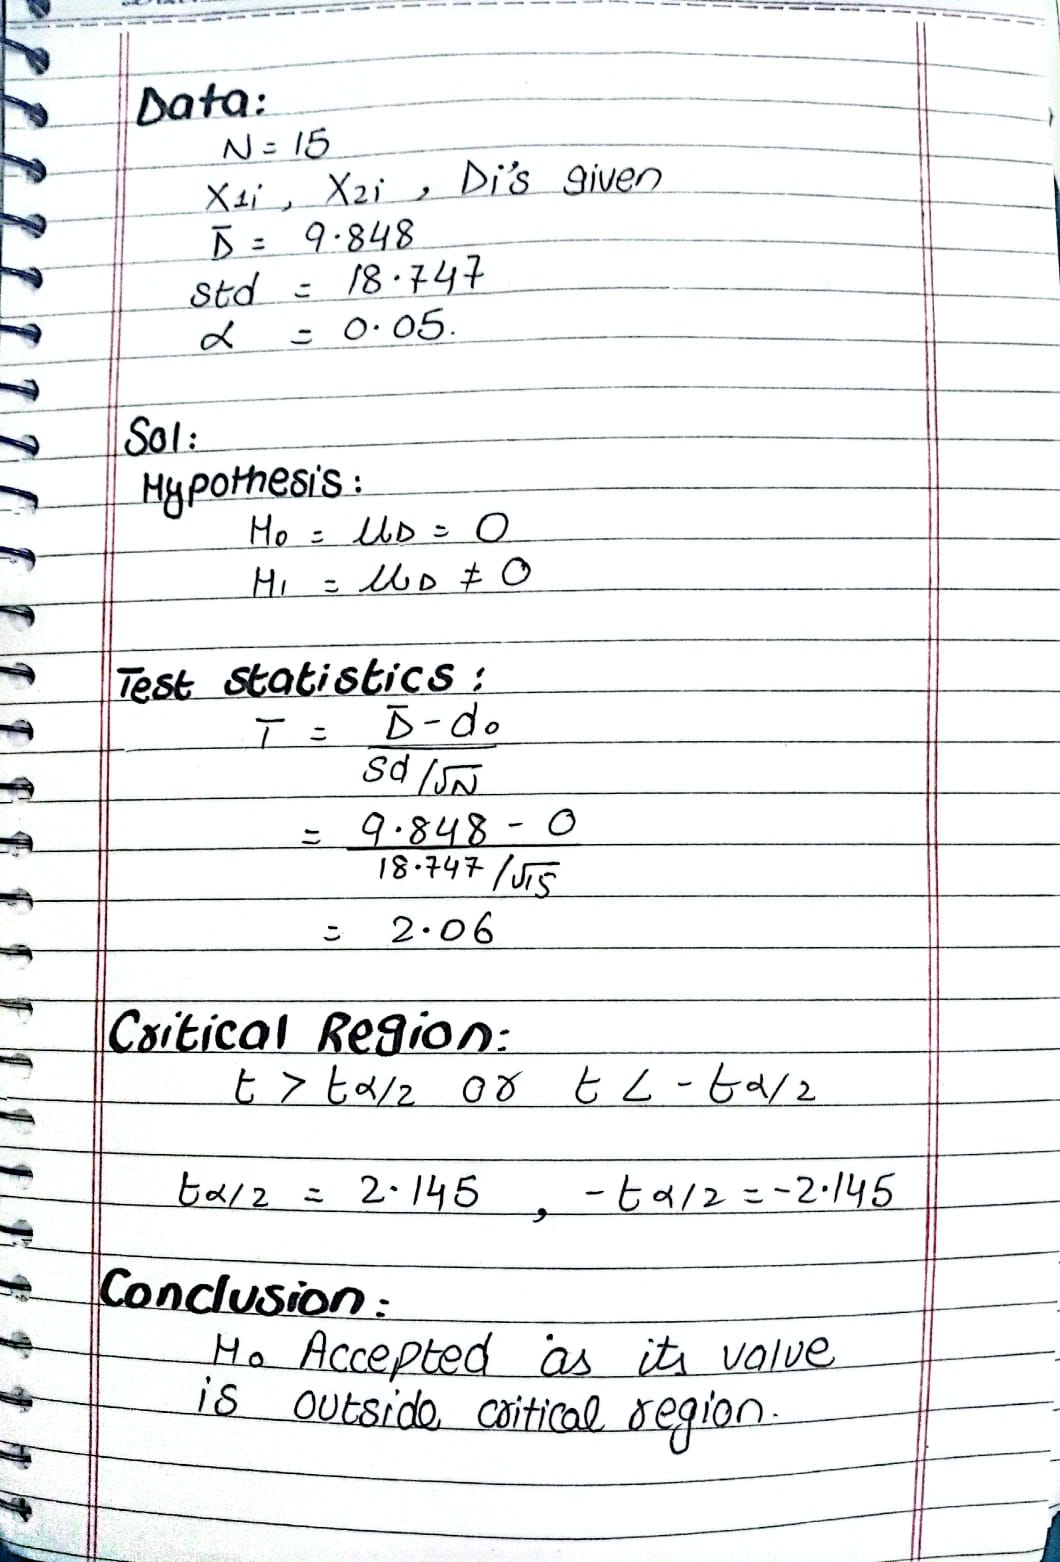 Data:
N = 15
X1i , X2i , Di's given
D̄ = 9.848
std = 18.747
α = 0.05.
Sol:
Hypothesis:
H0 = μD = 0
H1 = μD ≠ 0
Test statistics:
T = D̄ - d0
Sd/√N
= 9.848 - 0
18.747/√15
= 2.06
Critical Region:
t > tα/2 or t < -tα/2
tα/2 = 2.145 , -tα/2 = -2.145
Conclusion:
H0 Accepted as its value
is outside critical region.